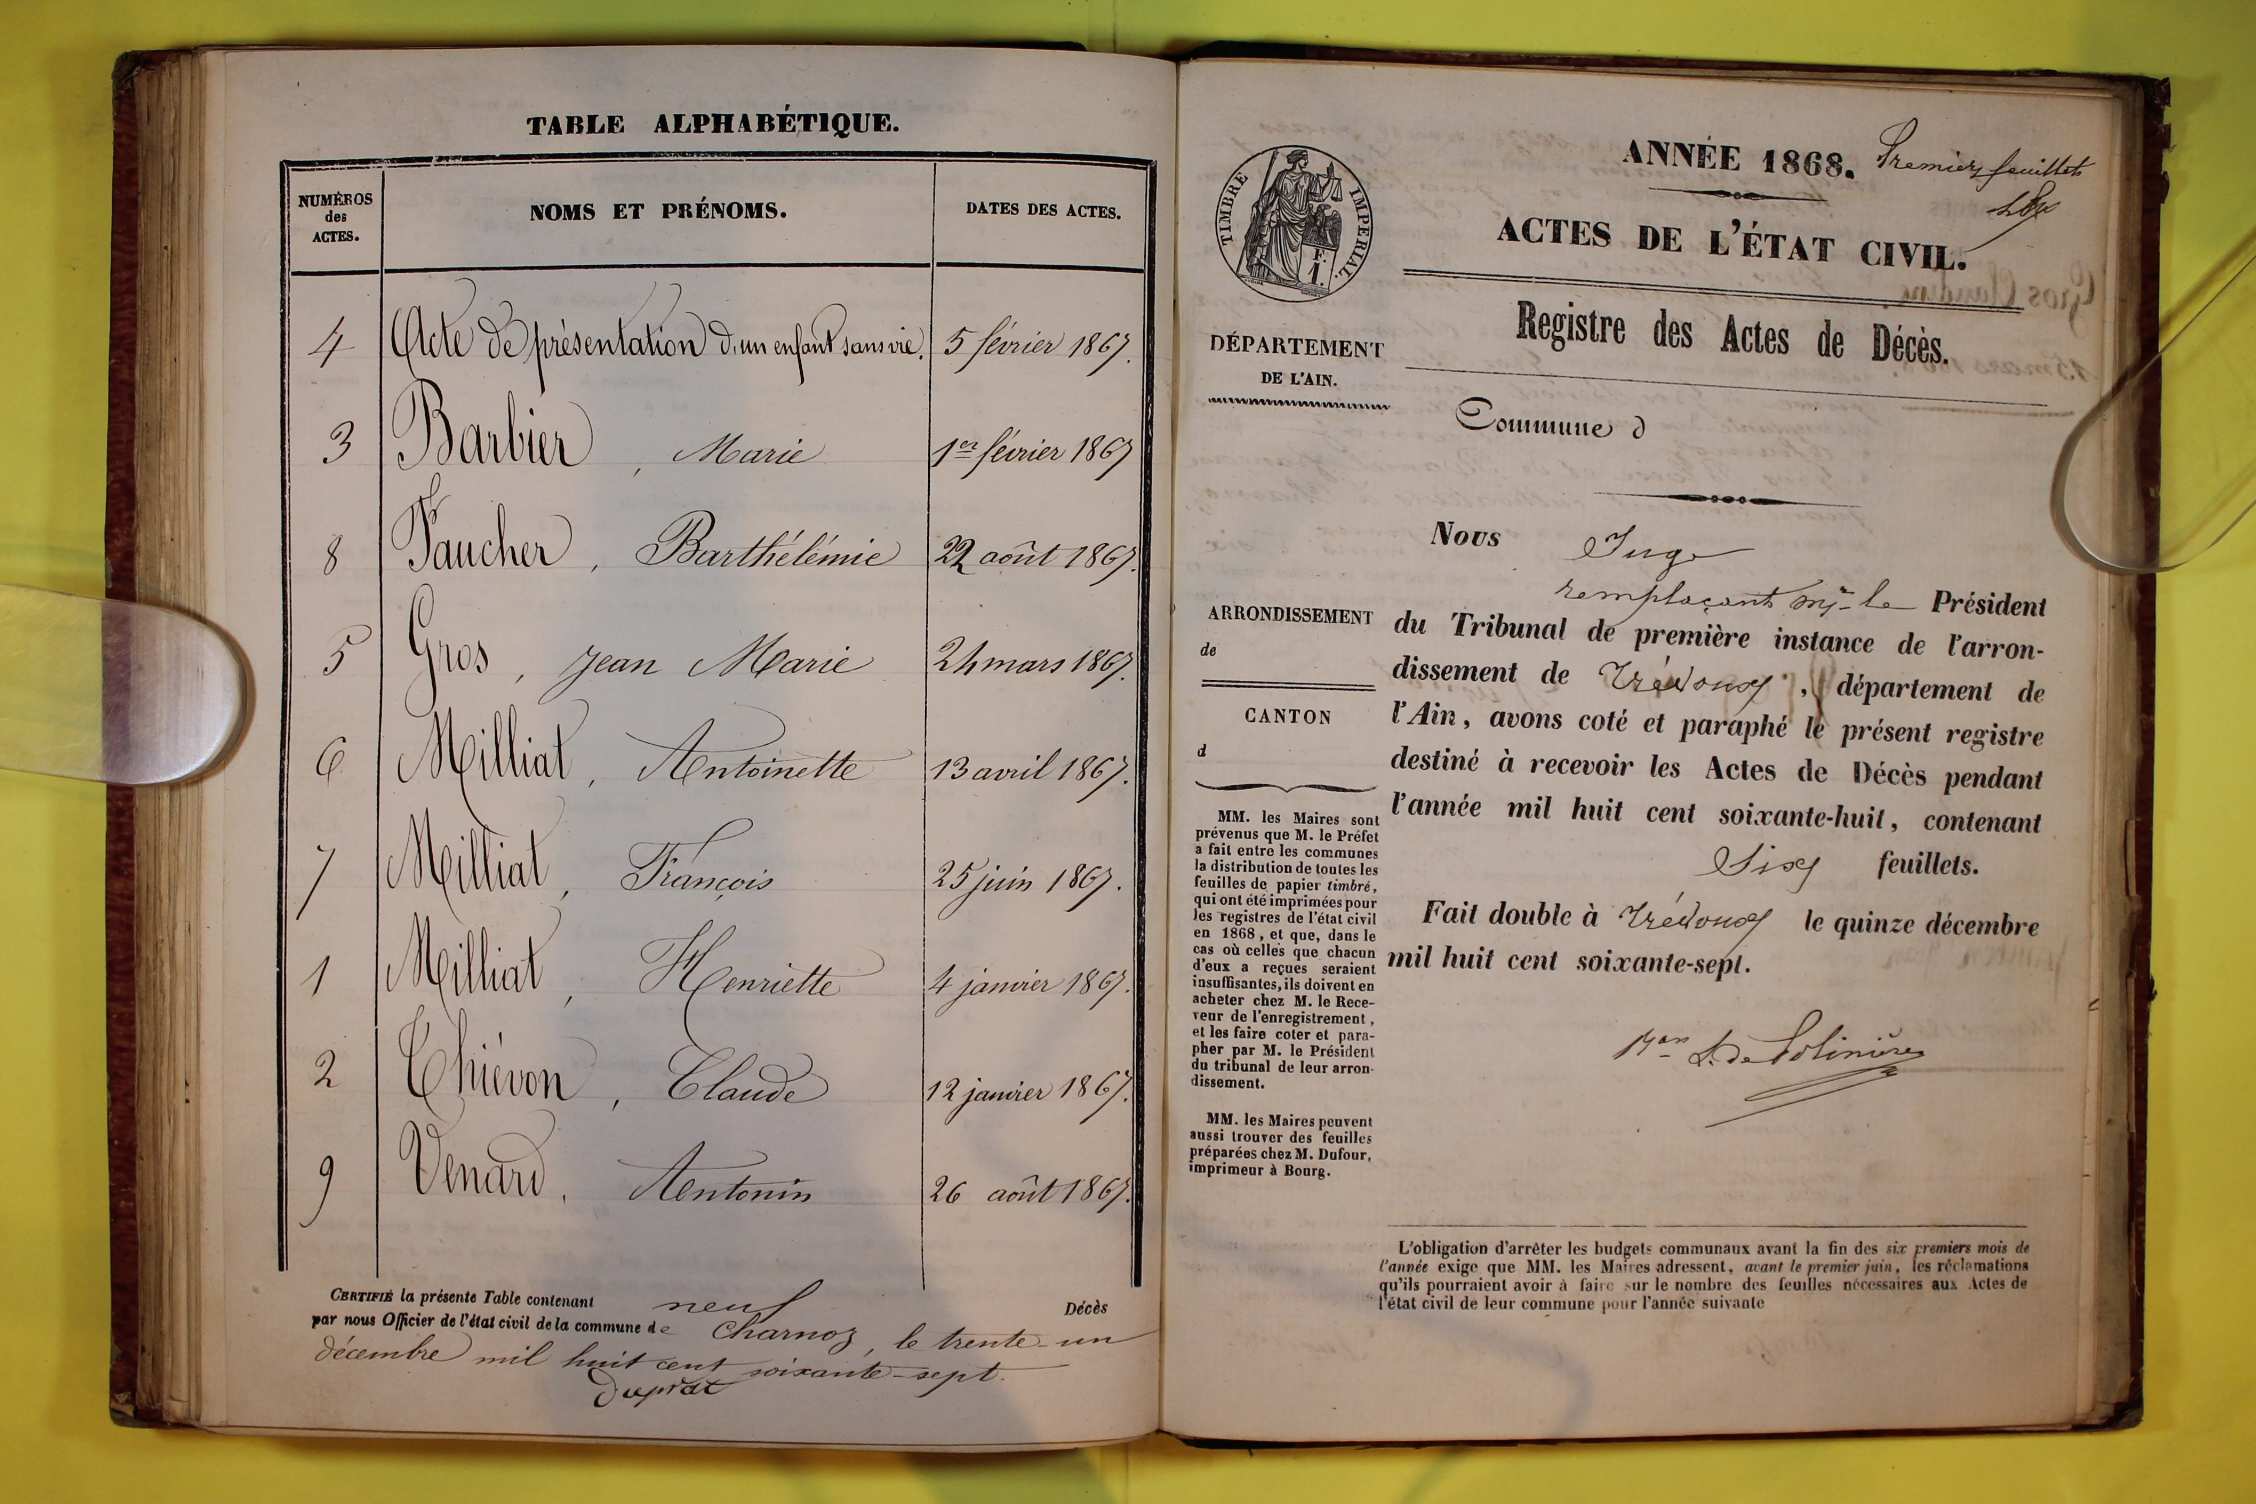 TABLE ALPHABÉTIQUE.
NUMÉROS des ACTES. NOMS ET PRÉNOMS. DATES DES ACTES.
4 Acte de présentation d'un enfant sans vie. 5 février 1867.
3 Barbier, Marie 1er février 1867
8 Faucher, Barthélémie 22 août 1867.
5 Gros, Jean Marie 24 mars 1867.
6 Milliat, Antoinette 13 avril 1867.
7 Milliat, François 25 juin 1867.
1 Milliat, Henriette 4 janvier 1867.
2 Thiévon, Claude 12 janvier 1867.
9 Venard, Antonin 26 août 1867.
CERTIFIÉ la présente Table contenant neuf Décès
par nous Officier de l'état civil de la commune de Charnoz, le trente-un
décembre mil huit cent soixante-sept.
Duprat
ANNÉE 1868. Premier feuillet
ACTES DE L'ÉTAT CIVIL.
TIMBRE IMPÉRIAL.
F.
1.
Registre des Actes de Décès.
DÉPARTEMENT
DE L'AIN.
Commune d
Nous Juge
remplaçant Mr le Président
du Tribunal de première instance de l'arron-
dissement de Trévoux, département de
l'Ain, avons coté et paraphé le présent registre
destiné à recevoir les Actes de Décès pendant
l'année mil huit cent soixante-huit, contenant
Six feuillets.
Fait double à Trévoux le quinze décembre
mil huit cent soixante-sept.
ARRONDISSEMENT
de
CANTON
d
MM. les Maires sont
prévenus que M. le Préfet
a fait entre les communes
la distribution de toutes les
feuilles de papier timbré,
qui ont été imprimées pour
les registres de l'état civil
en 1868, et que, dans le
cas où celles que chacun
d'eux a reçues seraient
insuffisantes, ils doivent en
acheter chez M. le Rece-
veur de l'enregistrement,
et les faire coter et para-
pher par M. le Président
du tribunal de leur arron-
dissement.
MM. les Maires peuvent
aussi trouver des feuilles
préparées chez M. Dufour,
imprimeur à Bourg.
L'obligation d'arrêter les budgets communaux avant la fin des six premiers mois de
l'année exige que MM. les Maires adressent, avant le premier juin, les réclamations
qu'ils pourraient avoir à faire sur le nombre des feuilles nécessaires aux Actes de
l'état civil de leur commune pour l'année suivante